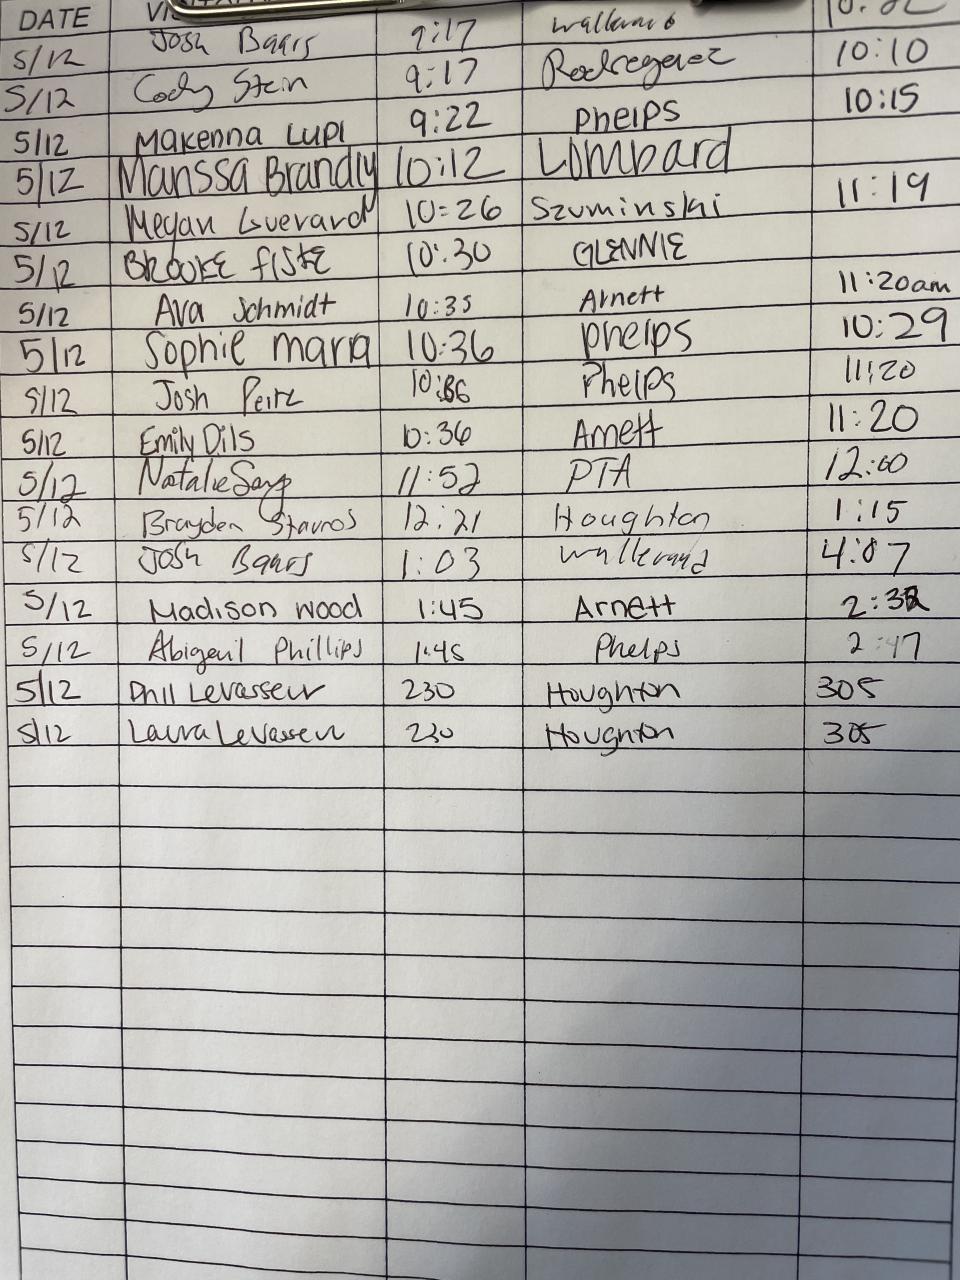 DATE
5/12 Josh Baars 9:17 10:
5/12 Cody Stein 9:17 10:10
5/12 Makenna Lupi 9:22 Phelps 10:15
5/12 Marissa Brandly 10:12 Lombard
5/12 Megan Guerard 10:26 Szuminski 11:19
5/12 BROOKE FISKE 10:30 GLENNIE
5/12 Ava Schmidt 10:35 Arnett 11:20am
5/12 Sophie maria 10:36 phelps 10:29
5/12 Josh Peitz Phelps 11:20
5/12 Emily Dils 10:36 Arnett 11:20
5/12 Natalie 11:52 PTA 12:00
5/12 Brayden Stavros 12:21 Houghton 1:15
5/12 Josh Baars 1:03 4:07
5/12 Madison Wood 1:45 Arnett
5/12 Abigail Phillips 1:45 Phelps 2:47
5/12 Phil Levasseur 230 Houghton 305
5/12 Laura Levasseur 230 Houghton 305